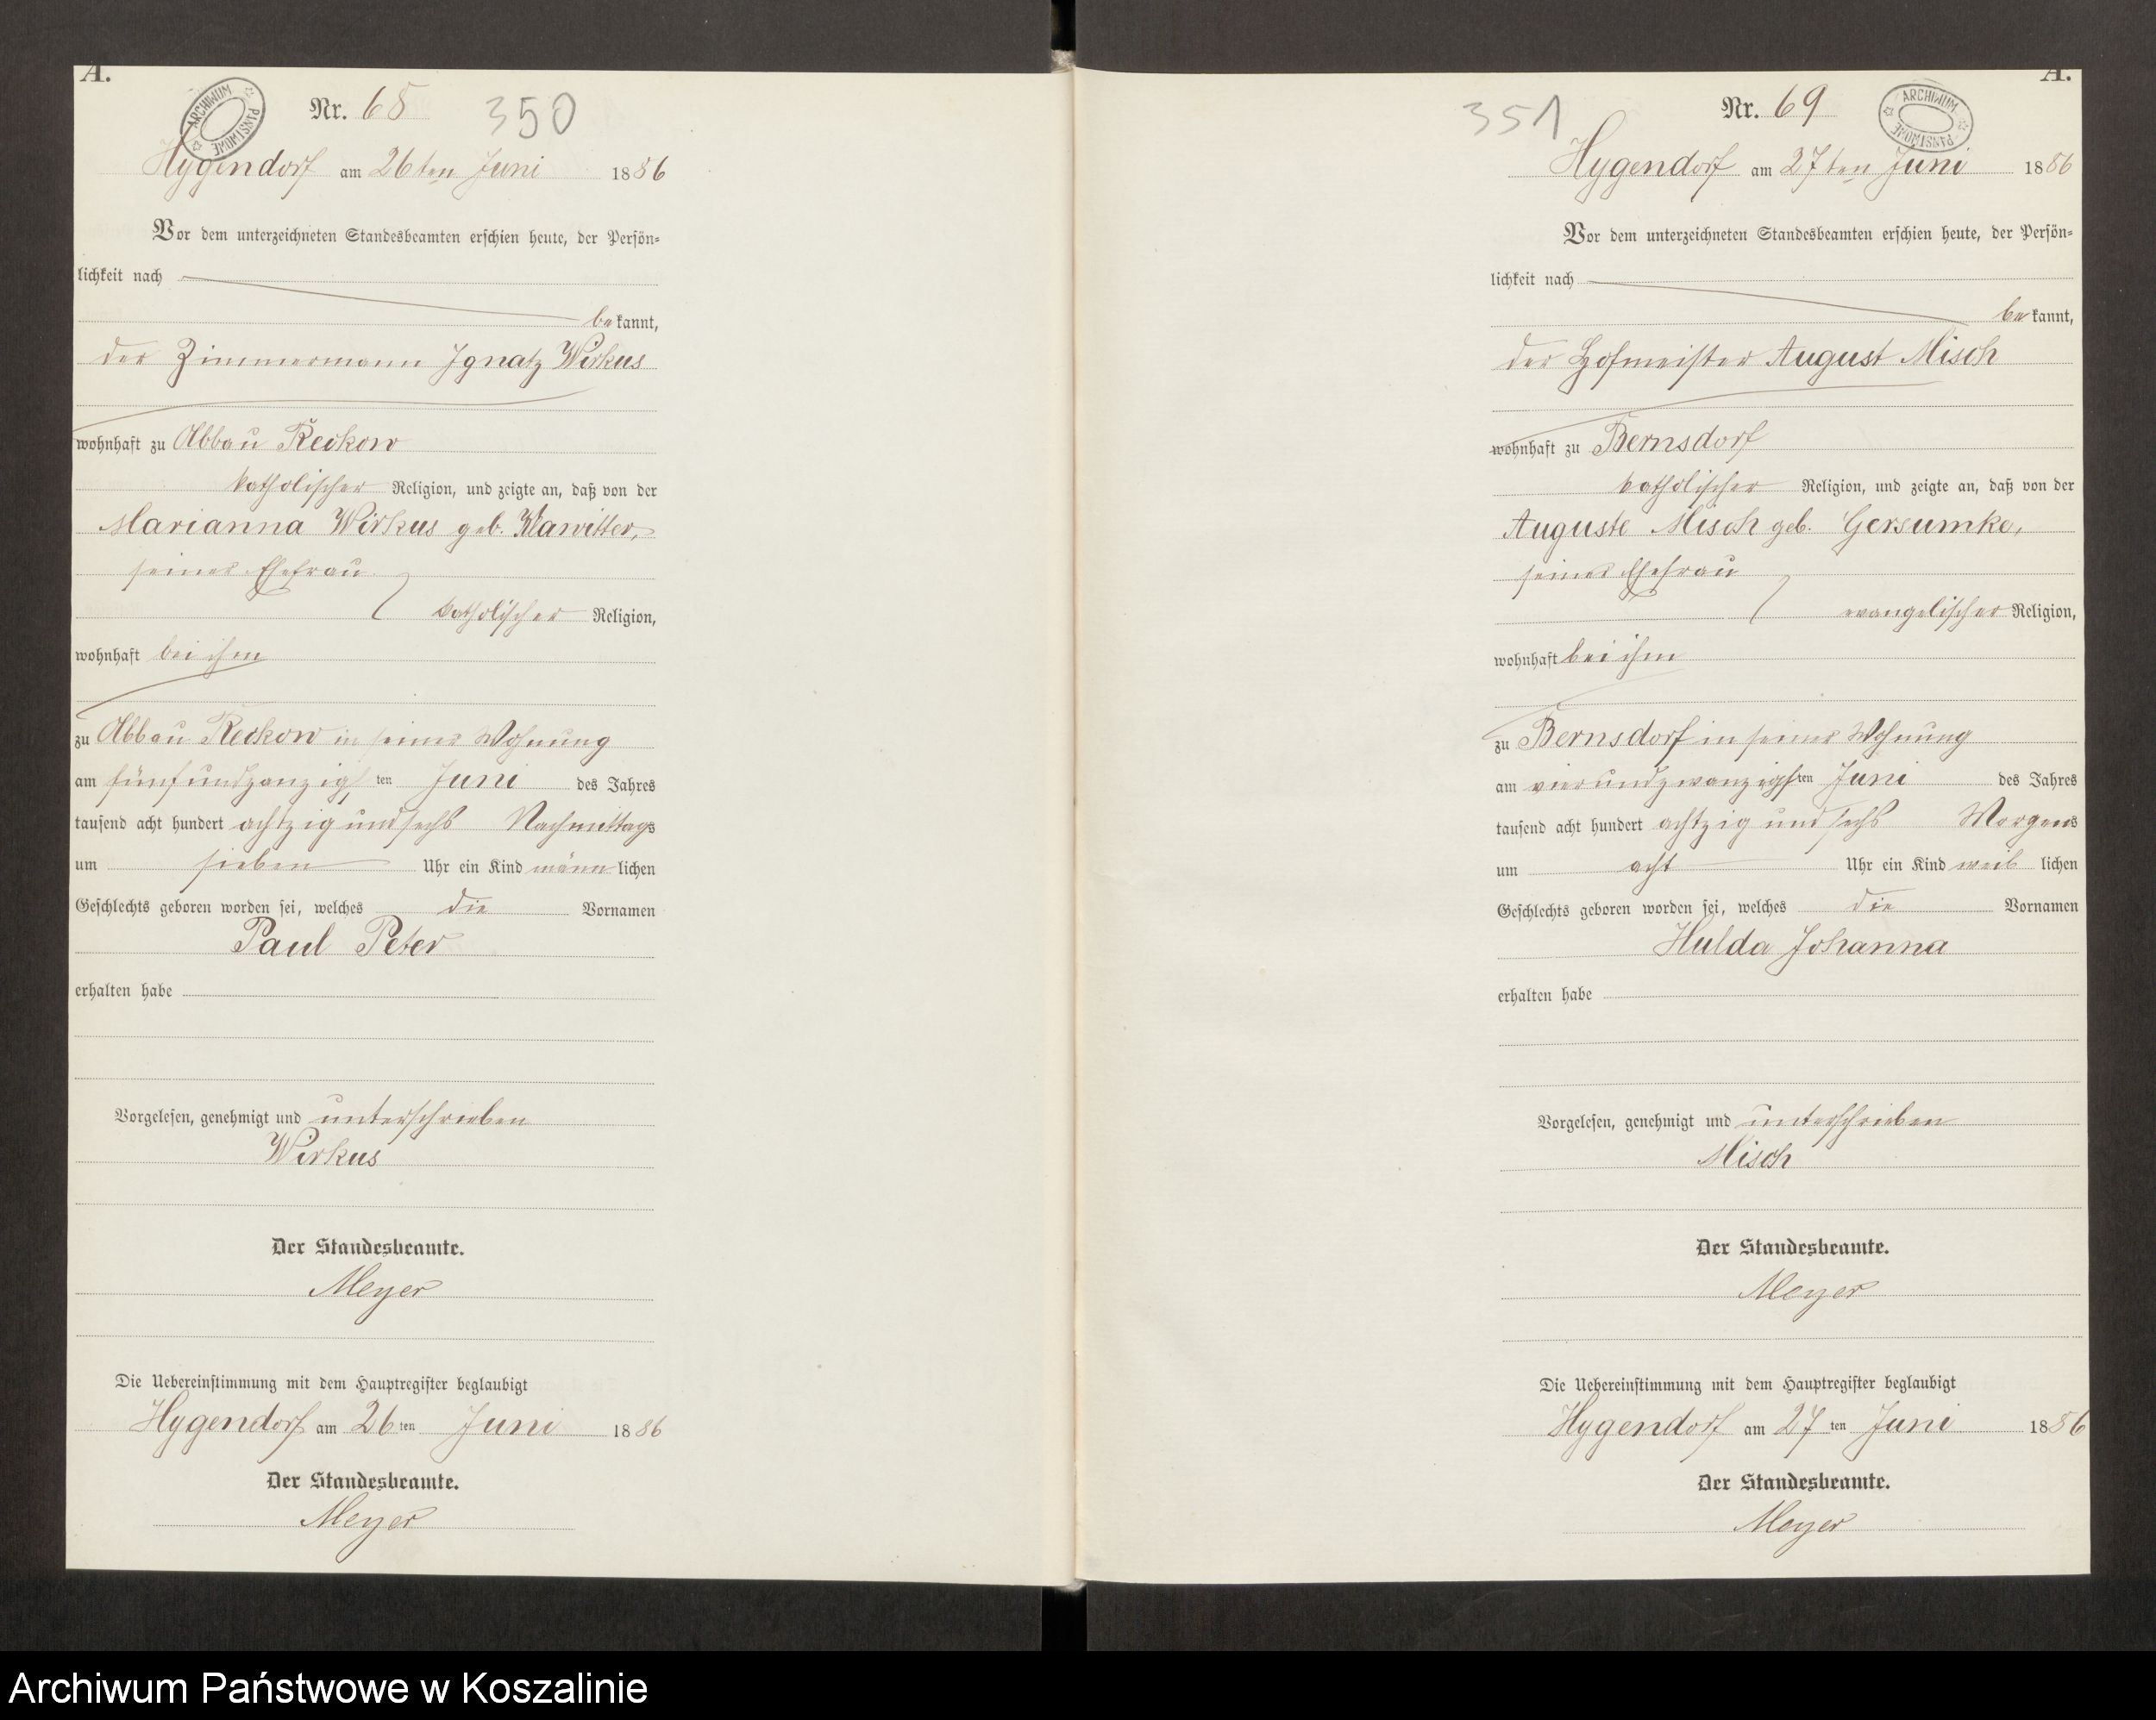 A.
ARCHIWUM PAŃSTWOWE
Nr. 68
350
Hygendorf am 26ten Juni 1886
Vor dem unterzeichneten Standesbeamten erschien heute, der Persön=
lichkeit nach
bekannt,
der Zimmermann Ignatz Wirkus
wohnhaft zu Abbau Reckow
katholischer Religion, und zeigte an, daß von der
Marianna Wirkus geb. Klawitter,
seiner Ehefrau
katholischer Religion,
wohnhaft bei ihm
zu Abbau Reckow in seiner Wohnung
am fünfundzanzigsten Juni des Jahres
tausend acht hundert achtzig und sechs Nachmittags
um sieben Uhr ein Kind männlichen
Geschlechts geboren worden sei, welches die Vornamen
Paul Peter
erhalten habe
Vorgelesen, genehmigt und unterschrieben
Wirkus
Der Standesbeamte.
Meyer
Die Uebereinstimmung mit dem Hauptregister beglaubigt
Hygendorf am 26ten Juni 1886
Der Standesbeamte.
Meyer
A.
351
Nr. 69
ARCHIWUM PAŃSTWOWE
Hygendorf am 27ten Juni 1886
Vor dem unterzeichneten Standesbeamten erschien heute, der Persön=
lichkeit nach
bekannt,
der Hofmeister August Misch
wohnhaft zu Bernsdorf
katholischer Religion, und zeigte an, daß von der
Auguste Misch geb. Gersumke,
seiner Ehefrau
evangelischer Religion,
wohnhaft bei ihm
zu Bernsdorf in seiner Wohnung
am vierundzwanzigsten Juni des Jahres
tausend acht hundert achtzig und sechs Morgens
um acht Uhr ein Kind weiblichen
Geschlechts geboren worden sei, welches die Vornamen
Hulda Johanna
erhalten habe
Vorgelesen, genehmigt und unterschrieben
Misch
Der Standesbeamte.
Meyer
Die Uebereinstimmung mit dem Hauptregister beglaubigt
Hygendorf am 27ten Juni 1886
Der Standesbeamte.
Meyer
Archiwum Państwowe w Koszalinie